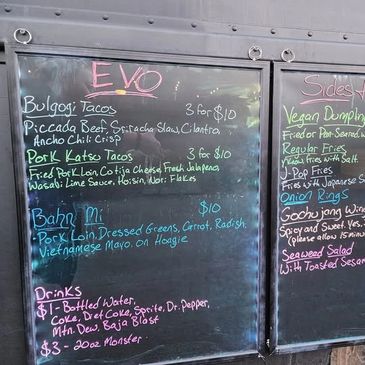 EVO
Bulgogi Tacos 3 for $10
Piccada Beef, Sriracha Slaw, Cilantro,
Ancho Chili Crisp
Pork Katsu Tacos 3 for $10
Fried Pork Loin, Cotija Cheese, Fresh Jalapeno,
Wasabi Lime Sauce, Hoisin, Nori Flakes
Bahn Mi $10
Pork Loin, Dressed Greens, Carrot, Radish,
Vietnamese Mayo. on Hoagie
Drinks
$1 - Bottled Water,
Coke, Diet Coke, Sprite, Dr. Pepper,
Mtn. Dew, Baja Blast
$3 - 20oz Monster
Sides
Vegan Dumplin
Fried or Pan-Seared w
Regular Fries
fries with Salt.
J-Pop Fries
Fries with Japanese S
Onion Rings
Gochujang Win
Spicy and Sweet. Yes,
(please allow 15 minu
Seaweed Salad
With Toasted Sesam